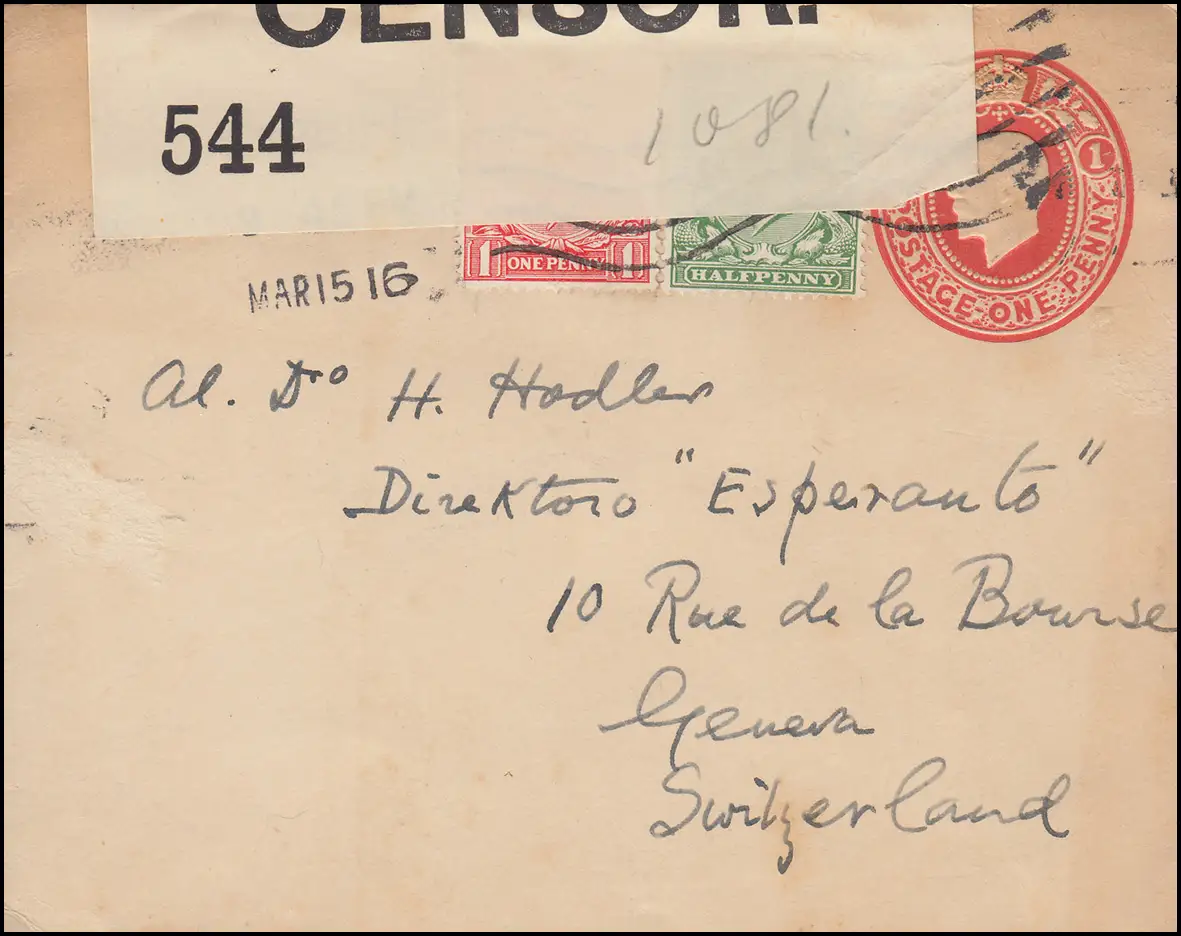 CENSOR.
544
1081.
1 ONE PENNY 1
HALFPENNY
1
POSTAGE ONE PENNY
MAR 15 16
Al. Dro H. Hodler
Direktoro "Esperanto"
10 Rue de la Bourse
Geneva
Switzerland